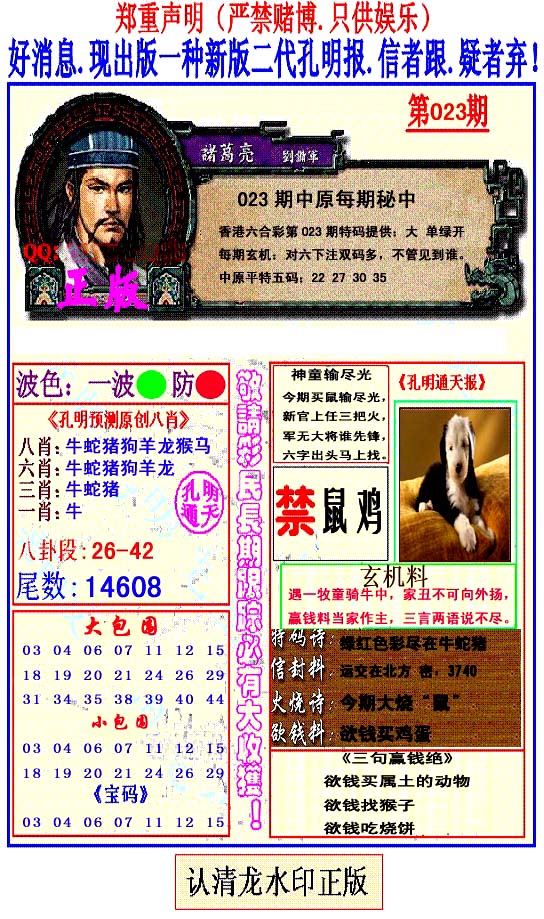 郑重声明（严禁赌博.只供娱乐）
好消息.现出版一种新版二代孔明报.信者跟.疑者弃！
第023期
諸葛亮
023 期中原每期秘中
香港六合彩第 023 期特码提供：大 单绿开
每期玄机：对六下注双码多，不管见到谁。
中原平特五码：22 27 30 35
QQ：
正版
波色：一波 防
《孔明预测原创八肖》
八肖：牛蛇猪狗羊龙猴马
六肖：牛蛇猪狗羊龙
三肖：牛蛇猪
一肖：牛
孔明
通天
八卦段：26-42
尾数：14608
大包围
03 04 06 07 11 12 15
18 19 20 21 24 26 29
31 34 35 38 39 40 44
小包围
03 04 06 07 11 12 15
18 19 20 21 24 26 29
《宝码》
03 04 06 07 11 12 15
敬請彩民長期跟踪必有大收獲！
神童输尽光
今期买鼠输尽光，
新官上任三把火，
军无大将谁先锋，
六字出头马上找。
《孔明通天报》
禁鼠鸡
玄机料
遇一牧童骑牛中，家丑不可向外扬，
赢钱料当家作主，三言两语说不尽。
特码诗：绿红色彩尽在牛蛇猪
信封料：运交在北方 密，3740
火烧诗：今期大烧“鼠”
欲钱料：欲钱买鸡蛋
《三句赢钱绝》
欲钱买属土的动物
欲钱找猴子
欲钱吃烧饼
认清龙水印正版